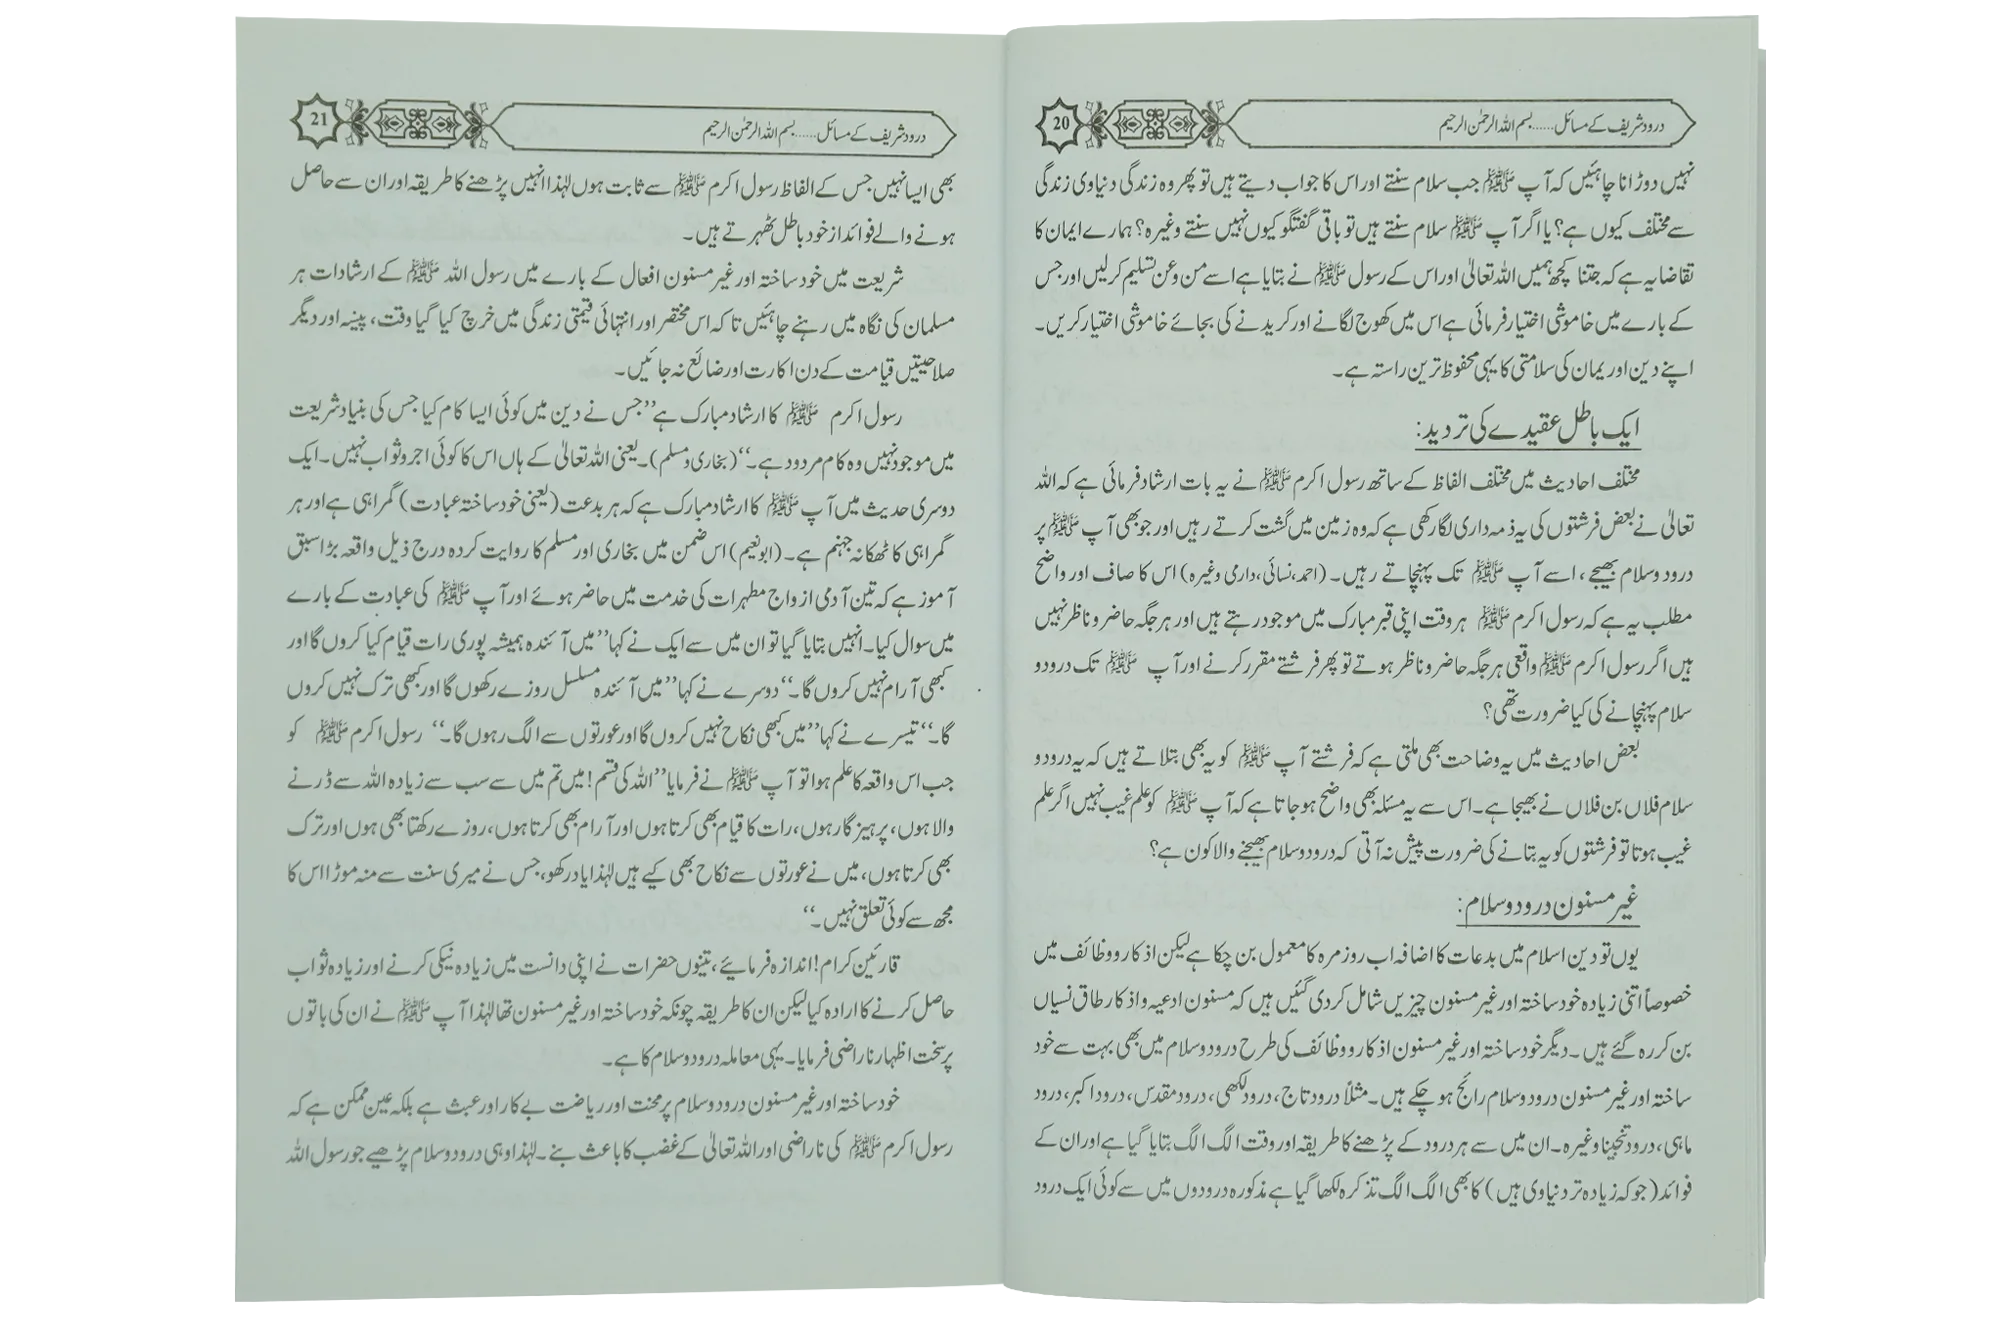 درود شریف کے مسائل......بسم اللہ الرحمٰن الرحیم
20
نہیں دوڑانا چاہئیں کہ آپ ﷺ جب سلام سنتے اور اس کا جواب دیتے ہیں تو پھر وہ زندگی دنیاوی زندگی
سے مختلف کیوں ہے؟ یا اگر آپ ﷺ سلام سنتے ہیں تو باقی گفتگو کیوں نہیں سنتے وغیرہ؟ ہمارے ایمان کا
تقاضا یہ ہے کہ جتنا کچھ ہمیں اللہ تعالیٰ اور اس کے رسول ﷺ نے بتایا ہے اسے من و عن تسلیم کرلیں اور جس
کے بارے میں خاموشی اختیار فرمائی ہے اس میں کھوج لگانے اور کریدنے کی بجائے خاموشی اختیار کریں۔
اپنے دین اور یمان کی سلامتی کا یہی محفوظ ترین راستہ ہے۔
ایک باطل عقیدے کی تردید:
مختلف احادیث میں مختلف الفاظ کے ساتھ رسول اکرم ﷺ نے یہ بات ارشاد فرمائی ہے کہ اللہ
تعالیٰ نے بعض فرشتوں کی یہ ذمہ داری لگا رکھی ہے کہ وہ زمین میں گشت کرتے رہیں اور جو بھی آپ ﷺ پر
درود و سلام بھیجے، اسے آپ ﷺ تک پہنچاتے رہیں۔ (احمد، نسائی، دارمی وغیرہ) اس کا صاف اور واضح
مطلب یہ ہے کہ رسول اکرم ﷺ ہر وقت اپنی قبر مبارک میں موجود رہتے ہیں اور ہر جگہ حاضر و ناظر نہیں
ہیں اگر رسول اکرم ﷺ واقعی ہر جگہ حاضر و ناظر ہوتے تو پھر فرشتے مقرر کرنے اور آپ ﷺ تک درود و
سلام پہنچانے کی کیا ضرورت تھی؟
بعض احادیث میں یہ وضاحت بھی ملتی ہے کہ فرشتے آپ ﷺ کو یہ بھی بتلاتے ہیں کہ یہ درود و
سلام فلاں بن فلاں نے بھیجا ہے۔ اس سے یہ مسئلہ بھی واضح ہو جاتا ہے کہ آپ ﷺ کو علم غیب نہیں اگر علم
غیب ہوتا تو فرشتوں کو یہ بتانے کی ضرورت پیش نہ آتی کہ درود و سلام بھیجنے والا کون ہے؟
غیر مسنون درود و سلام:
یوں تو دین اسلام میں بدعات کا اضافہ اب روز مرہ کا معمول بن چکا ہے لیکن اذکار و وظائف میں
خصوصاً اتنی زیادہ خود ساختہ اور غیر مسنون چیزیں شامل کر دی گئیں ہیں کہ مسنون ادعیہ و اذکار طاق نسیاں
بن کر رہ گئے ہیں۔ دیگر خود ساختہ اور غیر مسنون اذکار و وظائف کی طرح درود و سلام میں بھی بہت سے خود
ساختہ اور غیر مسنون درود و سلام رائج ہو چکے ہیں۔ مثلاً درود تاج، درود لکھی، درود مقدس، درود اکبر، درود
ماہی، درود تنجینا وغیرہ۔ ان میں سے ہر درود کے پڑھنے کا طریقہ اور وقت الگ الگ بتایا گیا ہے اور ان کے
فوائد (جو کہ زیادہ تر دنیاوی ہیں) کا بھی الگ الگ تذکرہ لکھا گیا ہے مذکورہ درودوں میں سے کوئی ایک درود
درود شریف کے مسائل......بسم اللہ الرحمٰن الرحیم
21
بھی ایسا نہیں جس کے الفاظ رسول اکرم ﷺ سے ثابت ہوں لہٰذا انہیں پڑھنے کا طریقہ اور ان سے حاصل
ہونے والے فوائد از خود باطل ٹھہرتے ہیں۔
شریعت میں خود ساختہ اور غیر مسنون افعال کے بارے میں رسول اللہ ﷺ کے ارشادات ہر
مسلمان کی نگاہ میں رہنے چاہئیں تاکہ اس مختصر اور انتہائی قیمتی زندگی میں خرچ کیا گیا وقت، پیسہ اور دیگر
صلاحیتیں قیامت کے دن اکارت اور ضائع نہ جائیں۔
رسول اکرم ﷺ کا ارشاد مبارک ہے ’’جس نے دین میں کوئی ایسا کام کیا جس کی بنیاد شریعت
میں موجود نہیں وہ کام مردود ہے۔‘‘ (بخاری و مسلم)۔ یعنی اللہ تعالیٰ کے ہاں اس کا کوئی اجر و ثواب نہیں۔ ایک
دوسری حدیث میں آپ ﷺ کا ارشاد مبارک ہے کہ ہر بدعت (یعنی خود ساختہ عبادت) گمراہی ہے اور ہر
گمراہی کا ٹھکانہ جہنم ہے۔ (ابونعیم) اس ضمن میں بخاری اور مسلم کا روایت کردہ درج ذیل واقعہ بڑا سبق
آموز ہے کہ تین آدمی ازواج مطہرات کی خدمت میں حاضر ہوئے اور آپ ﷺ کی عبادت کے بارے
میں سوال کیا۔ انہیں بتایا گیا تو ان میں سے ایک نے کہا ’’میں آئندہ ہمیشہ پوری رات قیام کیا کروں گا اور
کبھی آرام نہیں کروں گا۔‘‘ دوسرے نے کہا ’’میں آئندہ مسلسل روزے رکھوں گا اور کبھی ترک نہیں کروں
گا۔‘‘ تیسرے نے کہا ’’میں کبھی نکاح نہیں کروں گا اور عورتوں سے الگ رہوں گا۔‘‘ رسول اکرم ﷺ کو
جب اس واقعہ کا علم ہوا تو آپ ﷺ نے فرمایا ’’اللہ کی قسم! میں تم میں سے سب سے زیادہ اللہ سے ڈرنے
والا ہوں، پرہیز گار ہوں، رات کا قیام بھی کرتا ہوں اور آرام بھی کرتا ہوں، روزے رکھتا بھی ہوں اور ترک
بھی کرتا ہوں، میں نے عورتوں سے نکاح بھی کیے ہیں لہٰذا یاد رکھو، جس نے میری سنت سے منہ موڑا اس کا
مجھ سے کوئی تعلق نہیں۔‘‘
قارئین کرام! اندازہ فرمائیے، تینوں حضرات نے اپنی دانست میں زیادہ نیکی کرنے اور زیادہ ثواب
حاصل کرنے کا ارادہ کیا لیکن ان کا طریقہ چونکہ خود ساختہ اور غیر مسنون تھا لہٰذا آپ ﷺ نے ان کی باتوں
پر سخت اظہار ناراضی فرمایا۔ یہی معاملہ درود و سلام کا ہے۔
خود ساختہ اور غیر مسنون درود و سلام پر محنت اور ریاضت بے کار اور عبث ہے بلکہ عین ممکن ہے کہ
رسول اکرم ﷺ کی ناراضی اور اللہ تعالیٰ کے غضب کا باعث بنے۔ لہٰذا وہی درود و سلام پڑھیے جو رسول اللہ